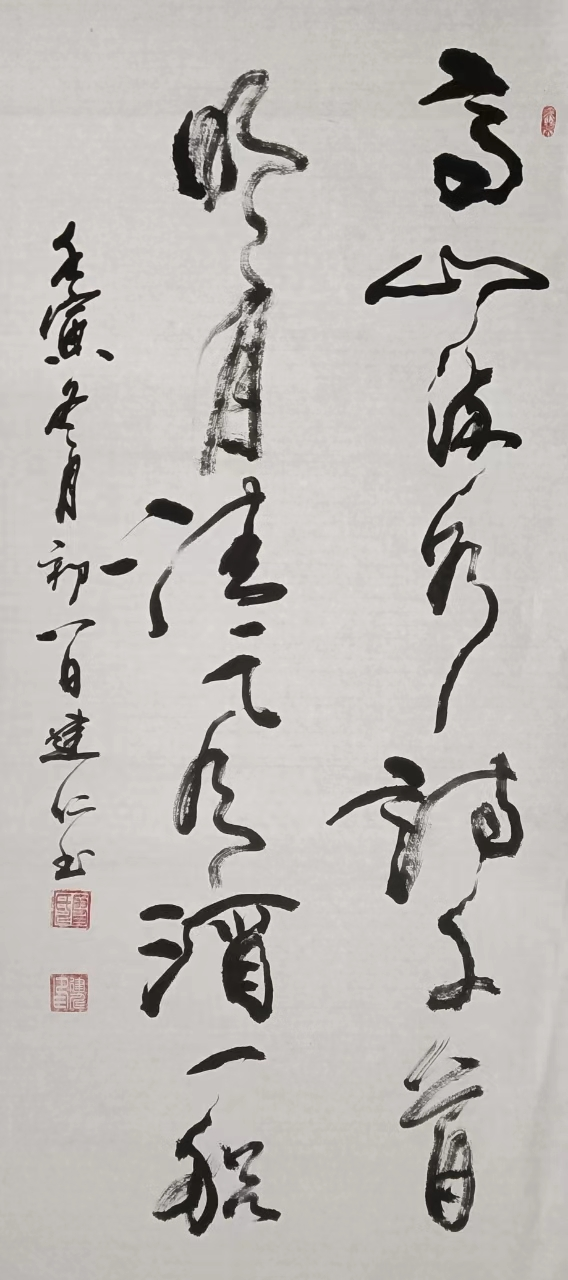 高山流水詩千首
明月清风酒一船
壬寅冬月初一日建仁书